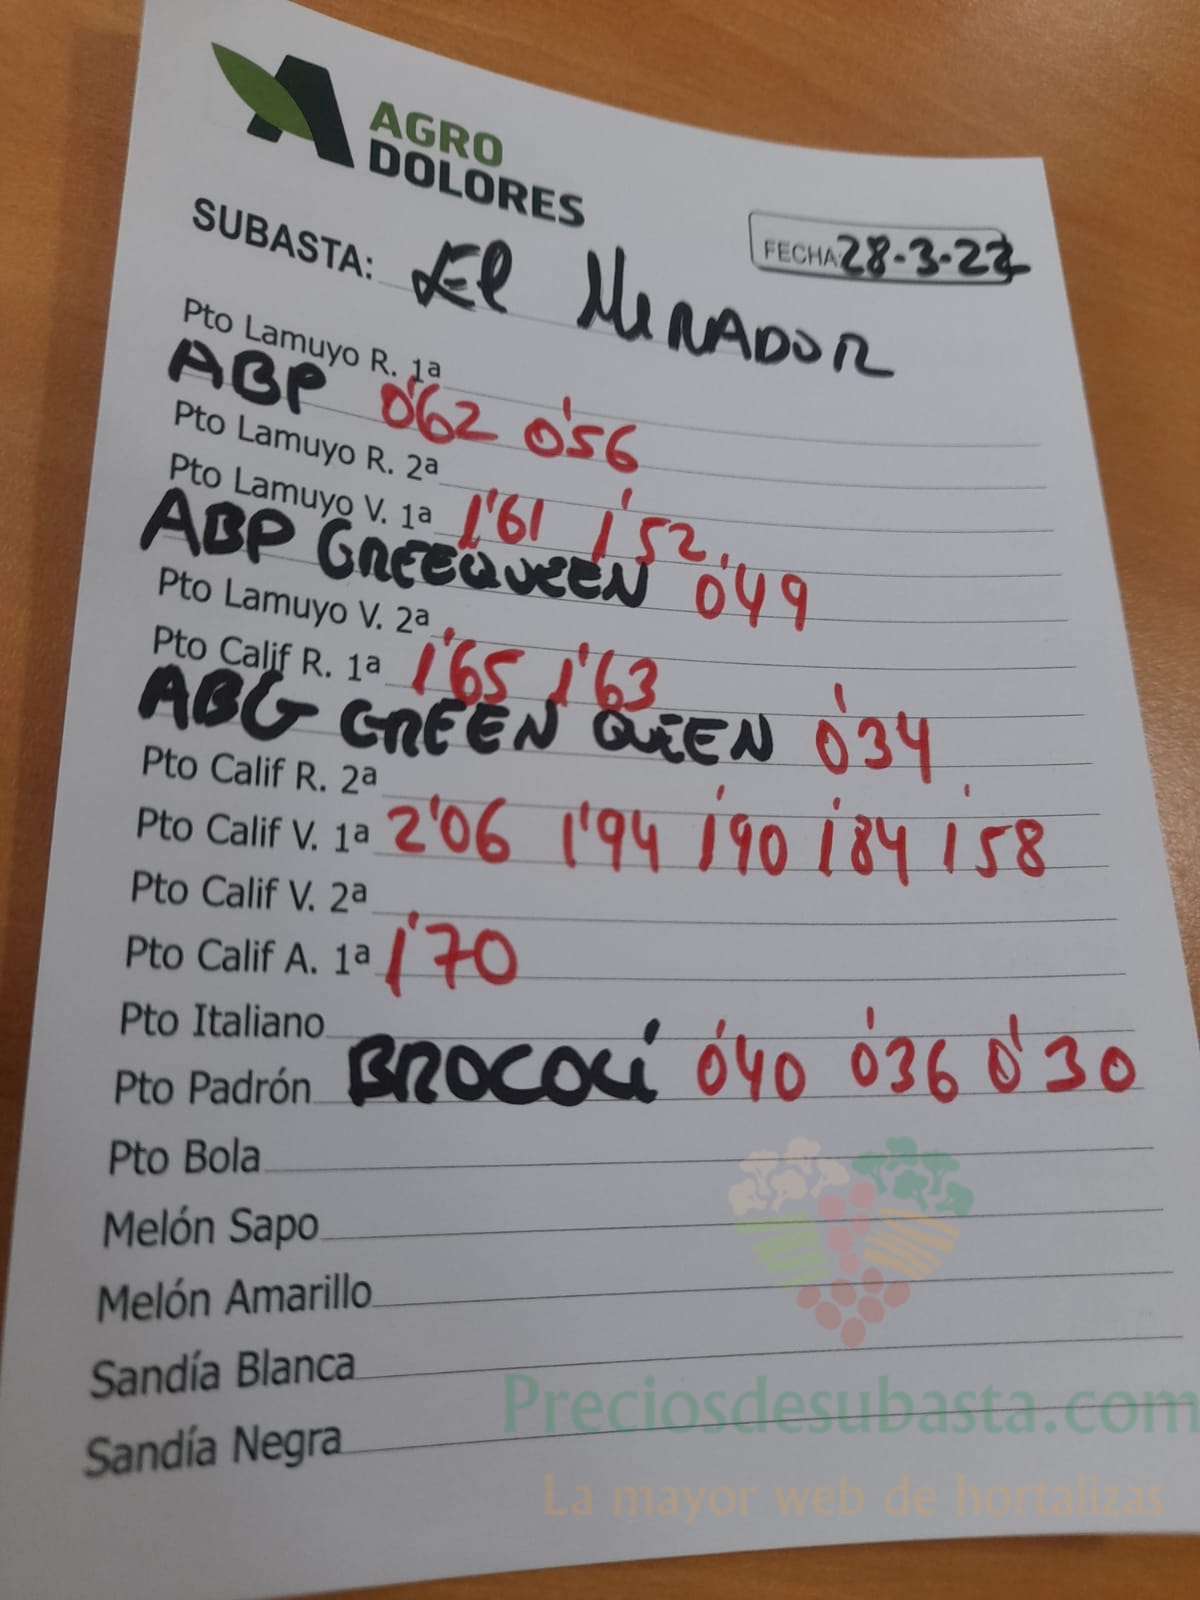 AGRO
DOLORES
SUBASTA: El MIRADOR
FECHA 28-3-22
Pto Lamuyo R. 1ª
ABP 0'62 0'56
Pto Lamuyo R. 2ª
Pto Lamuyo V. 1ª 1'61 1'52
ABP GREEQUEEN 0'49
Pto Lamuyo V. 2ª
Pto Calif R. 1ª 1'65 1'63
ABG GREEN QUEEN 0'34
Pto Calif R. 2ª
Pto Calif V. 1ª 2'06 1'94 1'90 1'84 1'58
Pto Calif V. 2ª
Pto Calif A. 1ª 1'70
Pto Italiano
Pto Padrón BROCOLÍ 0'40 0'36 0'30
Pto Bola
Melón Sapo
Melón Amarillo
Sandía Blanca
Sandía Negra
Preciosdesubasta.com
La mayor web de hortalizas